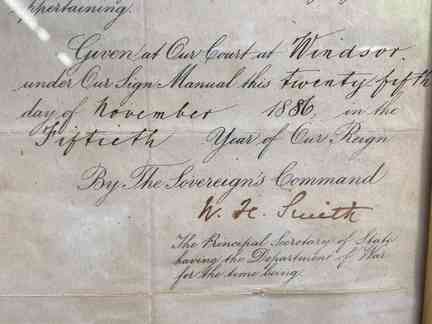 appertaining.
Given at Our Court at Windsor
under Our Sign Manual this twenty fifth
day of November 1886, in the
Fiftieth Year of Our Reign
By The Sovereign's Command
W. H. Smith
The Principal Secretary of State
having the Department of War
for the time being.